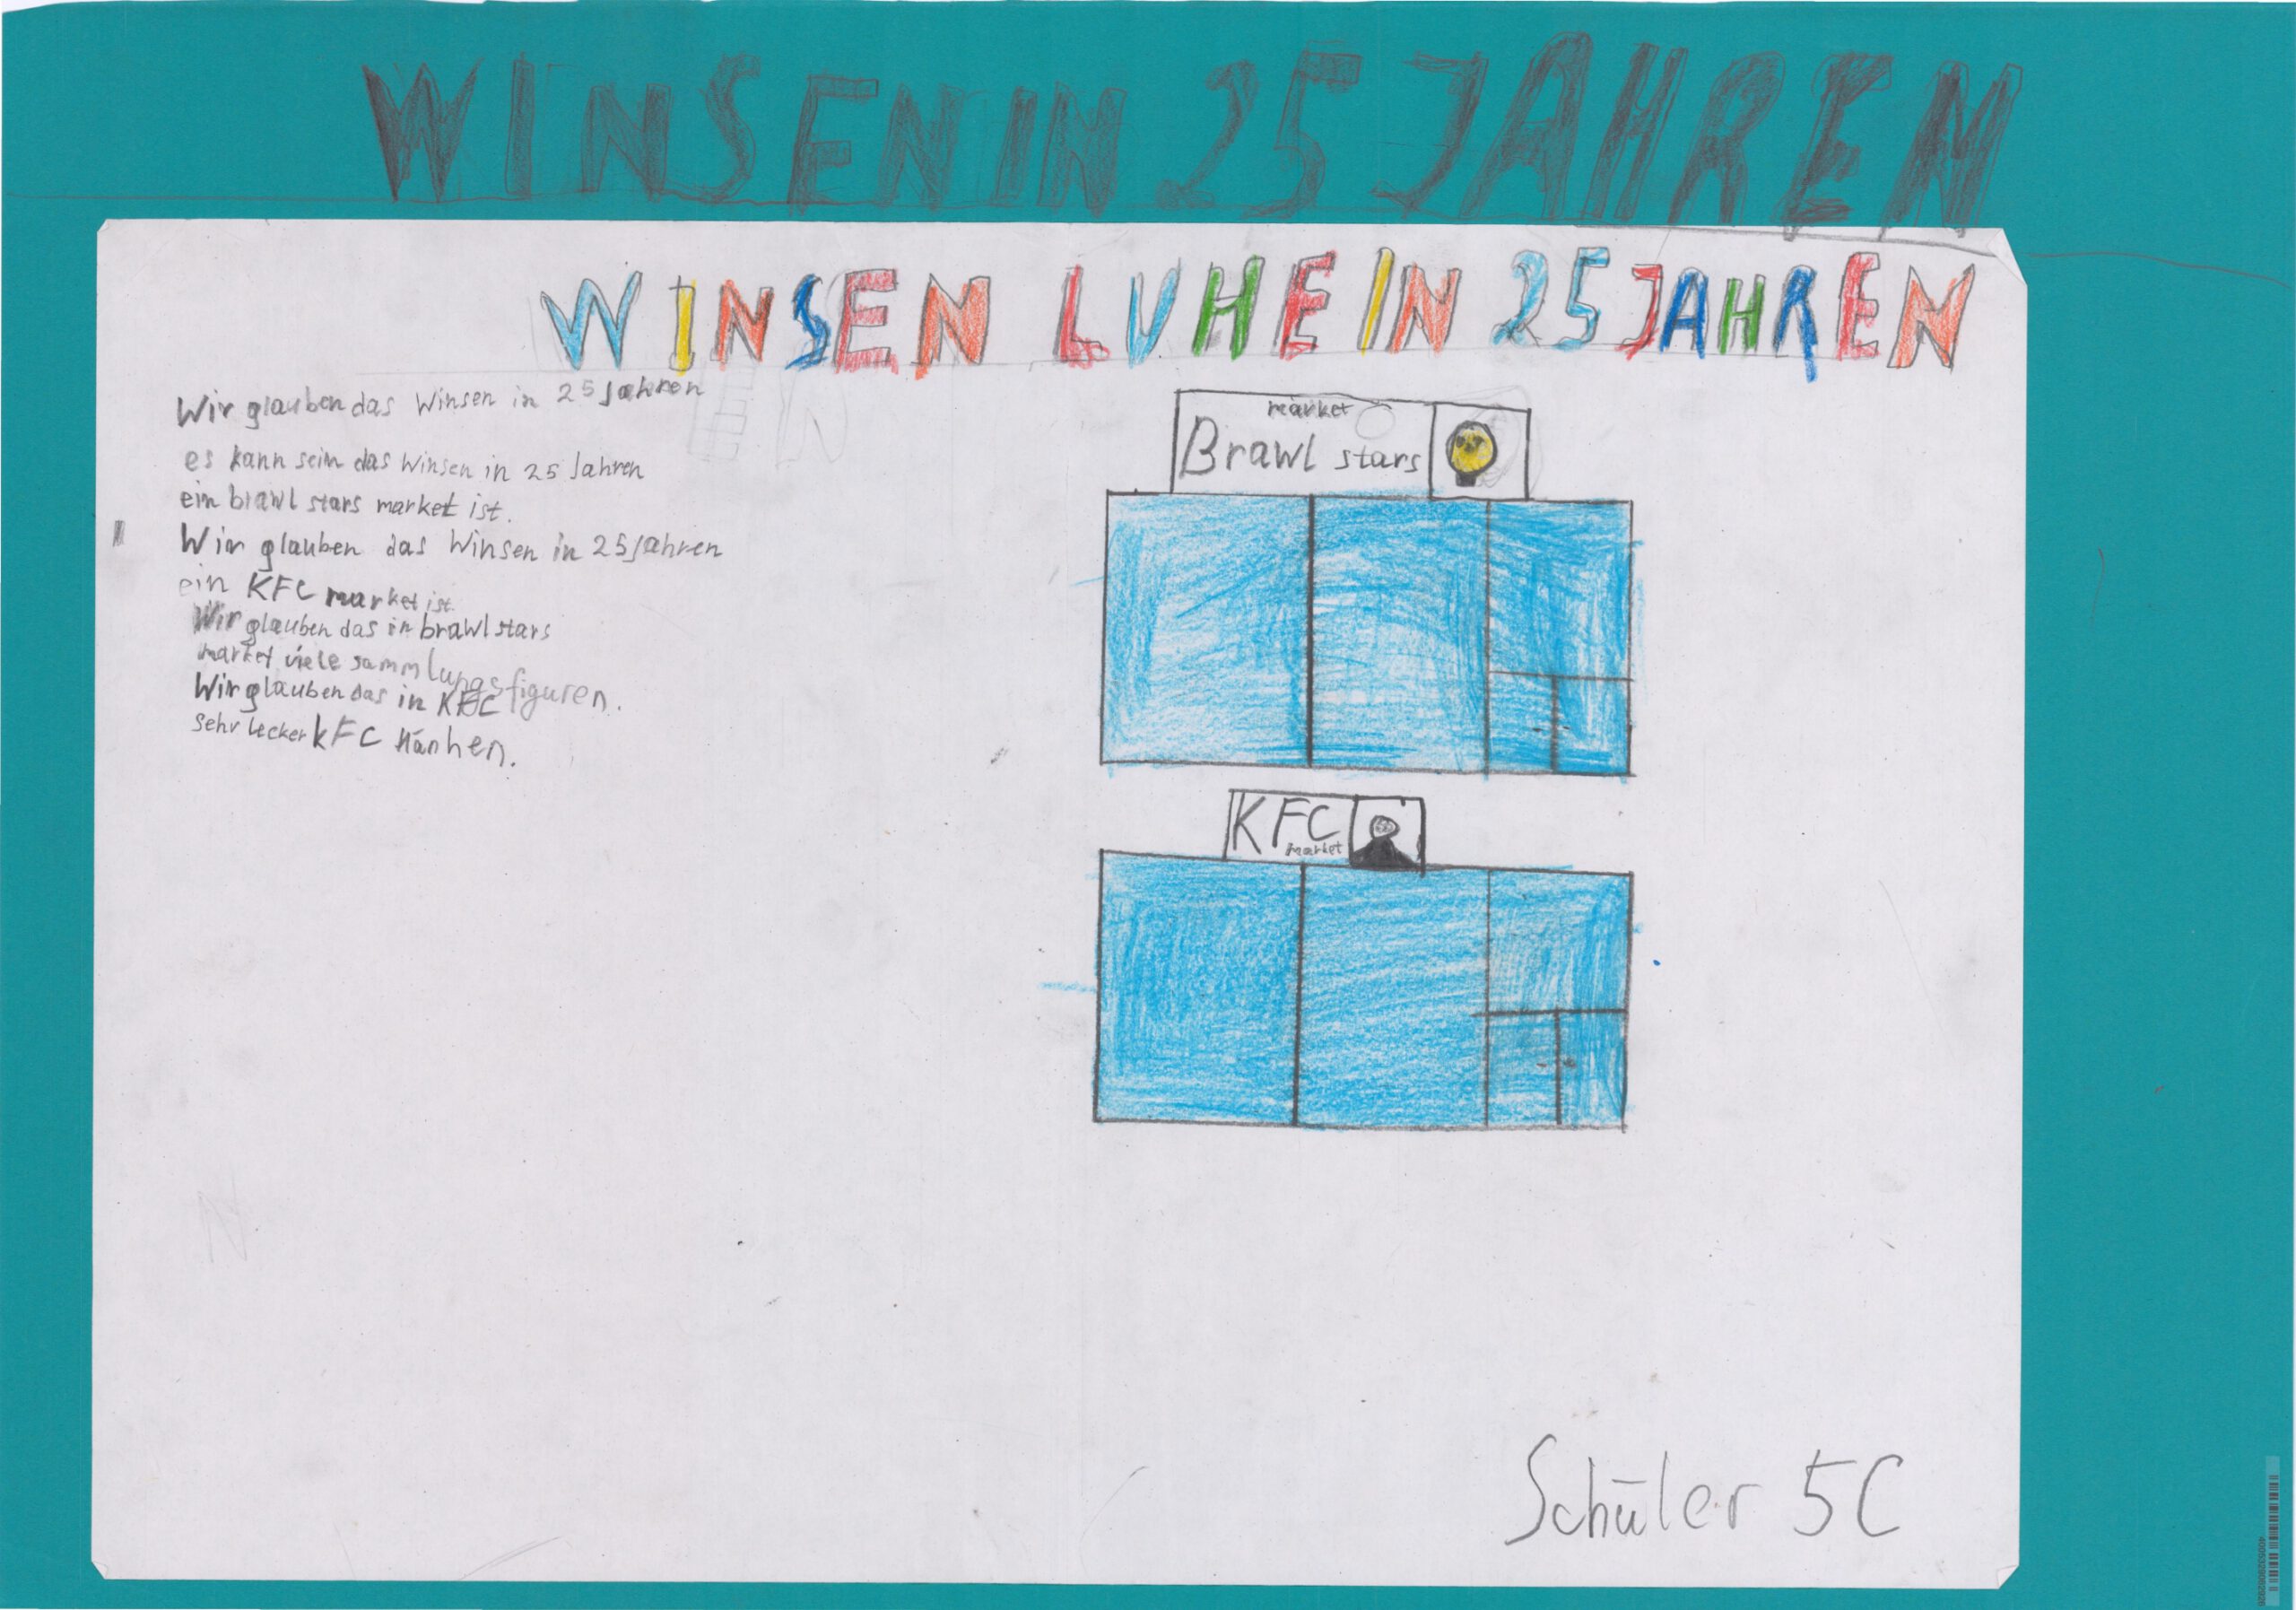 WINSEN IN 25 JAHREN
WINSEN LUHE IN 25 JAHREN
Wir glauben das Winsen in 25 Jahren
es kann sein das Winsen in 25 Jahren
ein brawl stars market ist.
Wir glauben das Winsen in 25 Jahren
ein KFC market ist.
Wir glauben das in brawl stars
market viele sammlungsfiguren.
Wir glauben das in KFC
sehr lecker KFC Hänhen.
market
Brawl stars
KFC
market
Schüler 5C